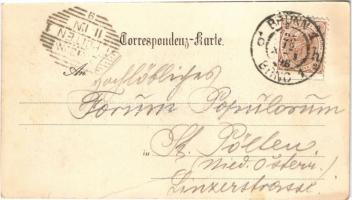 Correspondenz-Karte.
BRÜNN
BRNO
An
hochlöbliches
Forum Populorum
in St. Pölten
(Nied. Österr.)
Linzerstrasse.